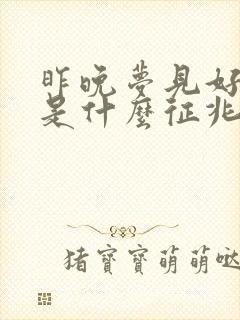 昨晚夢見好
是什麼征兆
猪寶寶萌萌噠